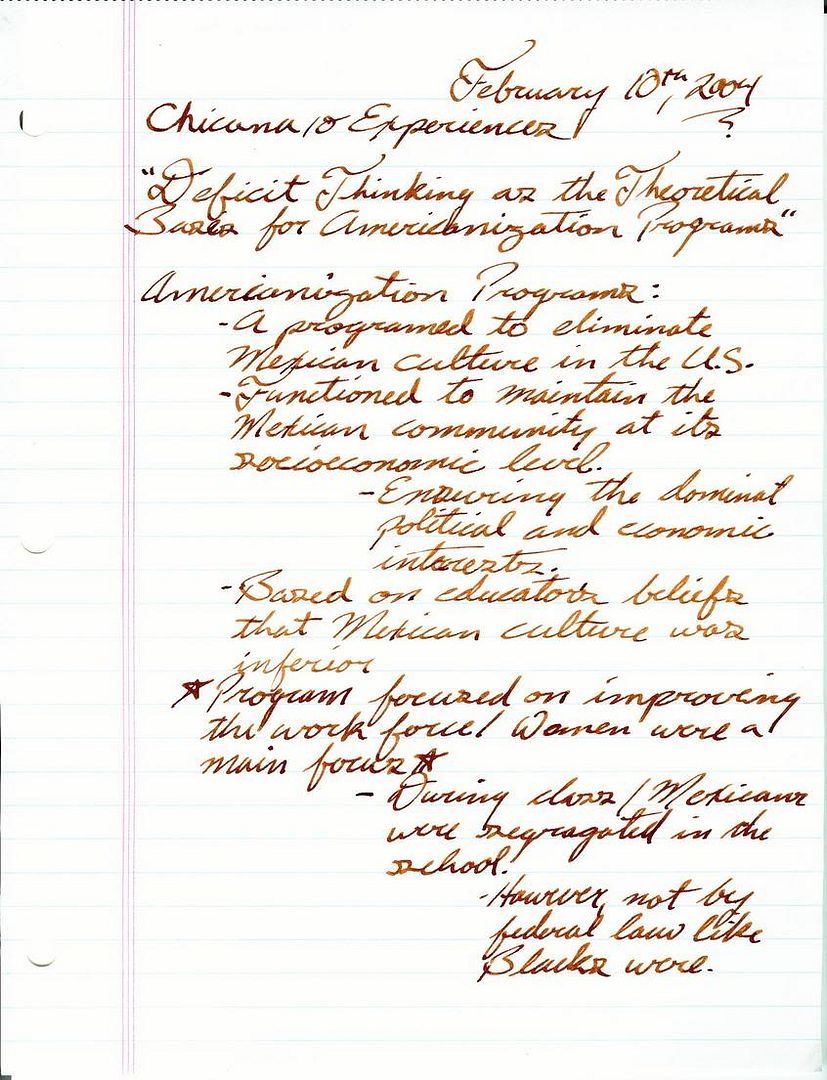 February 10th, 2004
Chicana/o Experiences ?
"Deficit Thinking as the Theoretical
Bases for Americanization Programs"
Americanization Programs:
-A programed to eliminate
Mexican culture in the U.S.
-Functioned to maintain the
Mexican community at its
socioeconomic level.
-Ensuring the dominat
political and economic
interests.
-Based on educators beliefs
that Mexican culture was
inferior
☆Program focused on improving
the work force/ Women were a
main focus☆
- During class/Mexicans
were segragated in the
school.
-However, not by
federal law like
Blacks were.